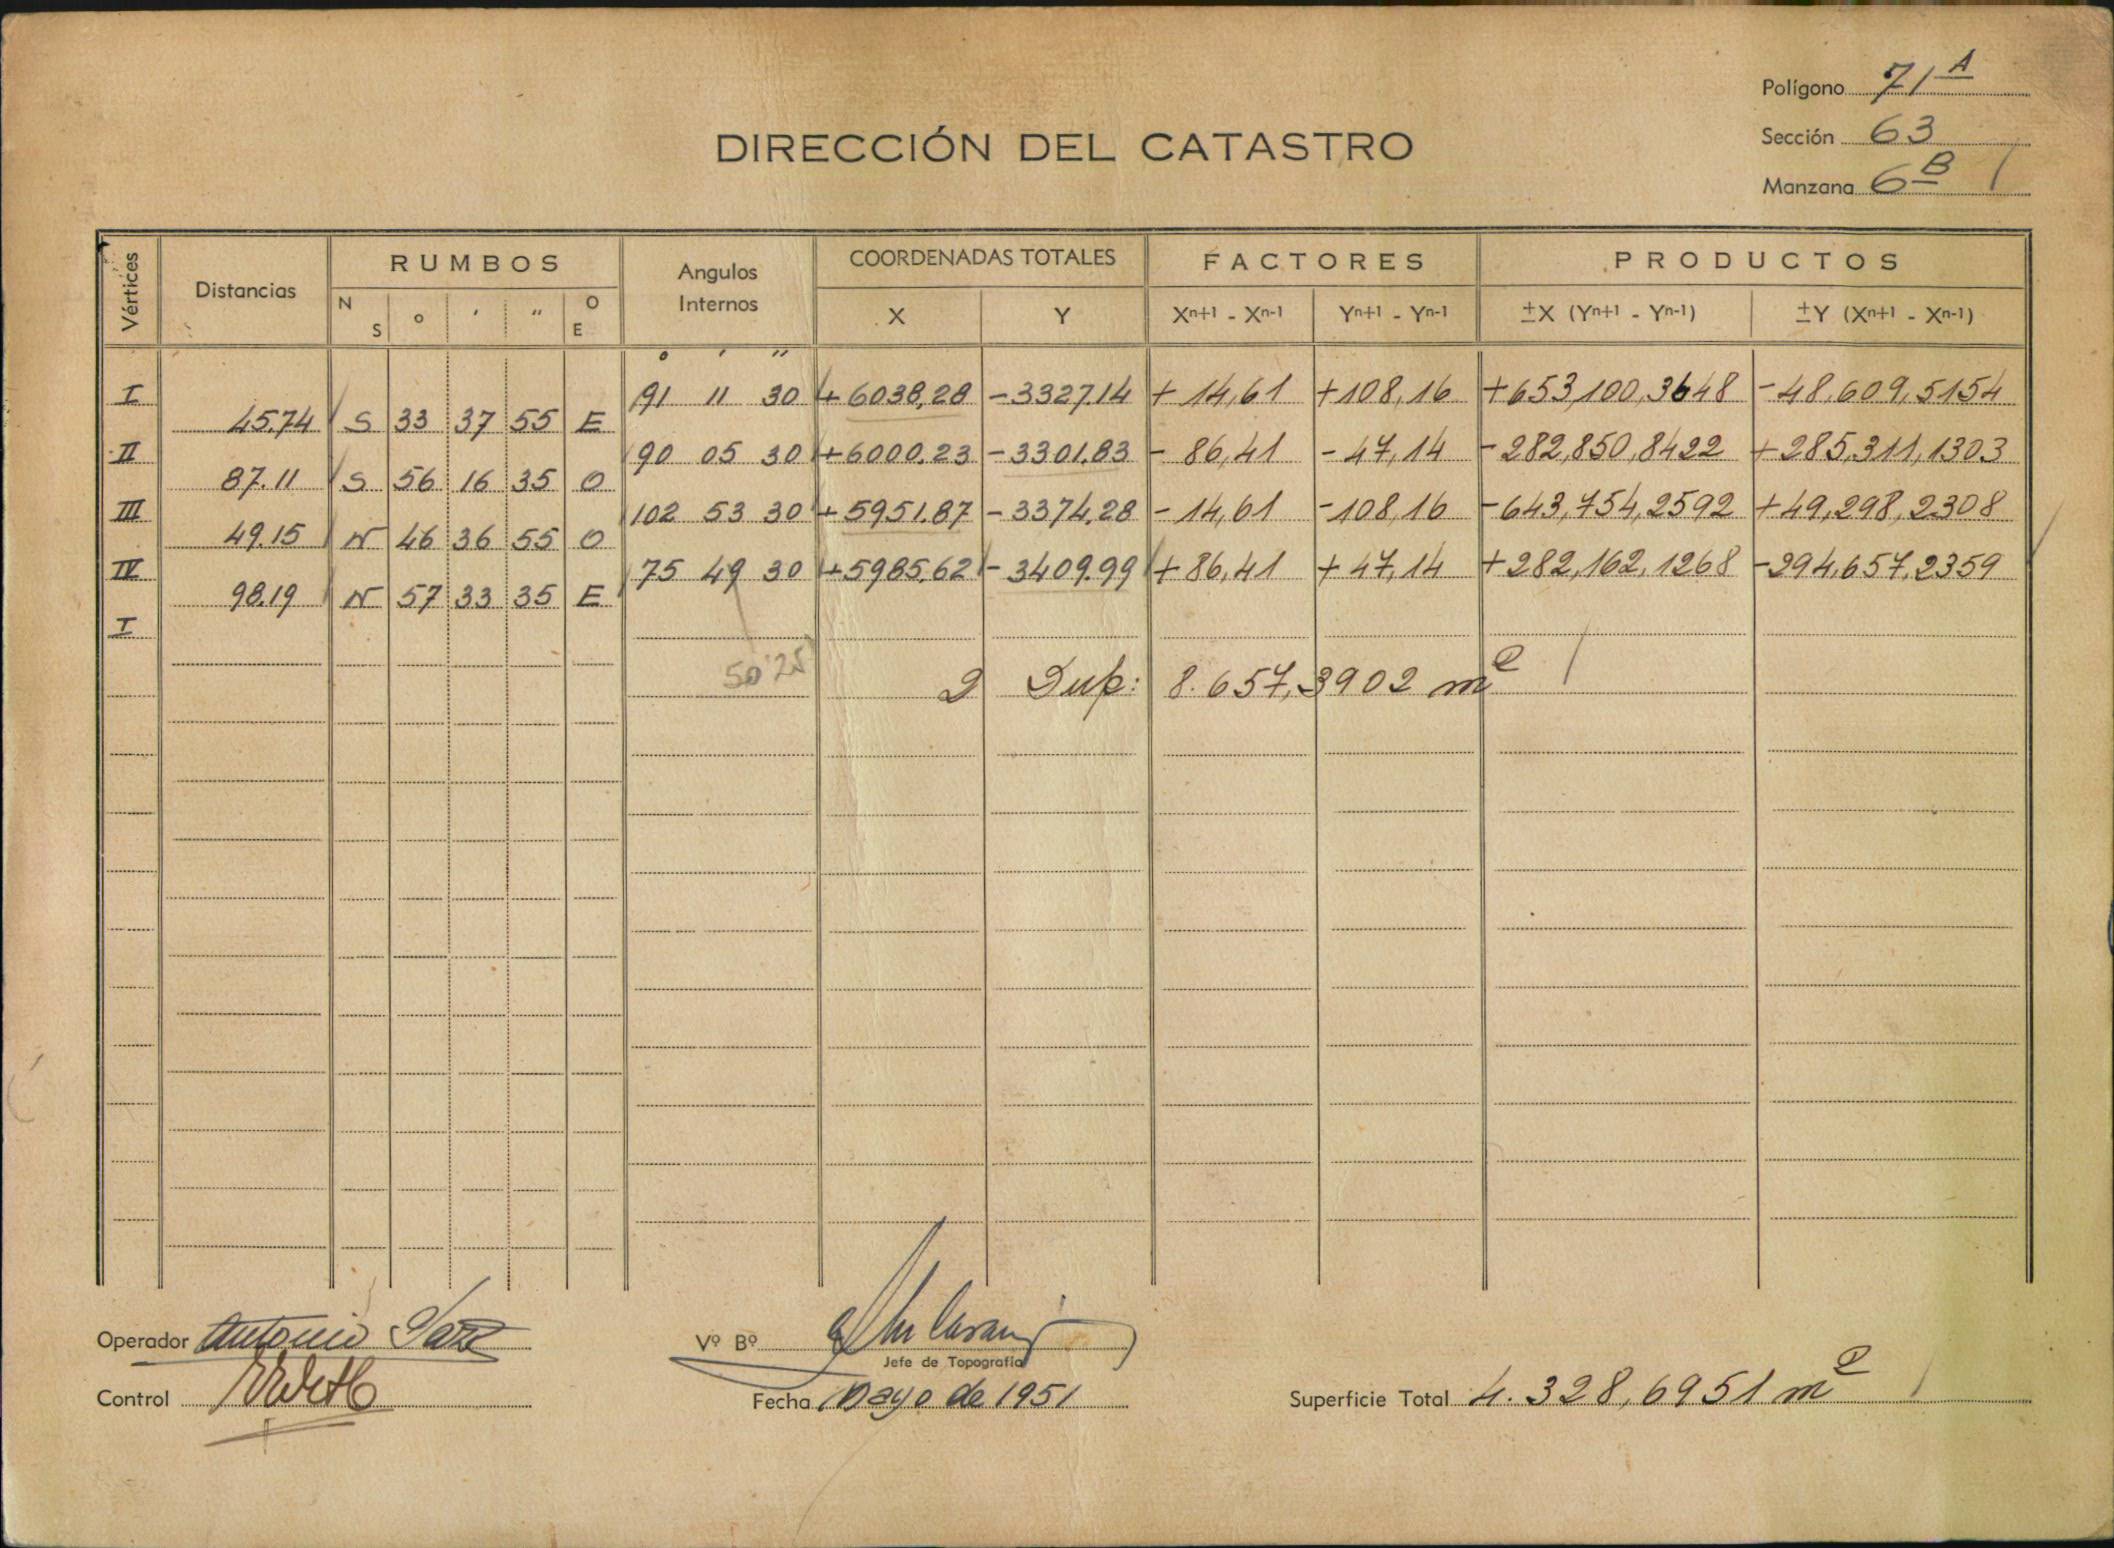 Polígono 71 A
Sección 63
Manzana 6 B
DIRECCIÓN DEL CATASTRO
Vértices Distancias RUMBOS Angulos Internos COORDENADAS TOTALES FACTORES PRODUCTOS
N S ° ' " O E X Y Xn+1 - Xn-1 Yn+1 - Yn-1 ±X (Yn+1 - Yn-1) ±Y (Xn+1 - Xn-1)
° ' "
I 91 11 30 +6038,28 -3327.14 +14,61 +108,16 +653,100,3648 -48.609,5154
45.74 S 33 37 55 E
II 90 05 30 +6000.23 -3301.83 -86,41 -47,14 -282,850,8422 +285,311,1303
87.11 S 56 16 35 O
III 102 53 30 +5951.87 -3374,28 -14,61 -108,16 -643,754,2592 +49,298,2308
49.15 N 46 36 55 O
IV 75 49 30 +5985,62 -3409.99 +86,41 +47,14 +282,162,1268 -294,657,2359
98.19 N 57 33 35 E
I
50'25
2 Sup: 8.657,3902 m2
Operador Antonio
Vº Bº
Jefe de Topografía
Control
Fecha Mayo de 1951
Superficie Total 4.328,6951 m2